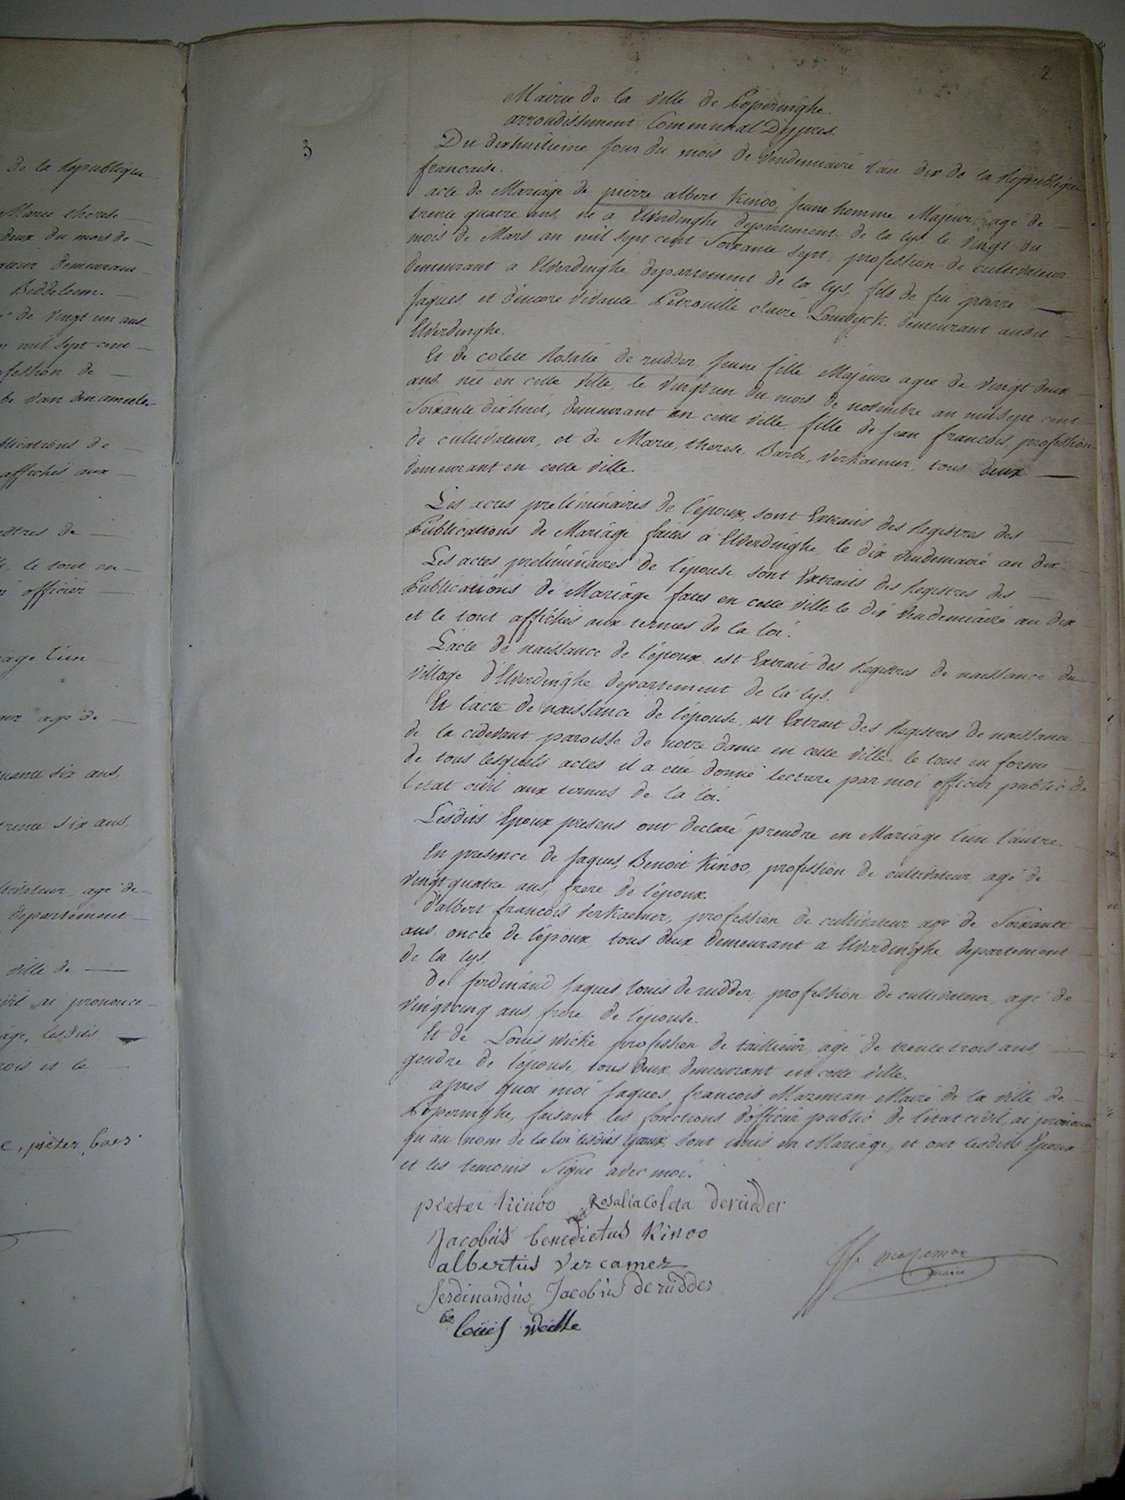 de la republique
Marie therese
deux du mois de
demeurant
de vingt un ans
mil sept cent
profession de
publications de
affichés aux
le tout en
officier
mariage l'un
agé de
quarante six ans,
trente six ans
cultivateur, agé de
departement
ville de
ai prononcé
et le
pieter baes
2
3
Mairie de la ville de Poperinghe.
arrondissement Communal D'ypres.
Du dixhuitieme jour du mois de vendemiaire l'an dix de la Republique
francaise.
acte de Mariage de pierre albert Kinoo, jeune homme Majeur agé de
trente quatre ans, né a Elverdinghe departement de la lys le vingt du
mois de Mars an mil sept cent Soixante sept, profession de cultivateur
demeurant a Elverdinghe departement de la lys, fils de feu pierre
Jaques et d'encore vivante Petronille claire Lameyck demeurant audit
Elverdinghe.
Et de colete Rosalie de rudder jeune fille Majeure agée de vingt deux
ans née en cette ville le vingt un du mois de novembre an mil sept cent
Soixante dixhuit, demeurant en cette ville, fille de jean francois profession
de cultivateur, et de Marie therese Barbe Verkaemer, tous deux
demeurant en cette ville.
Les actes preliminaires de l'époux, sont Extraits des Registres des
Publications de Mariage faites à Elverdinghe le dix vendemiaire an dix
Les actes preliminaires de l'épouse sont Extraits des Registres des
Publications de Mariage faites en cette ville le dix vendemiaire an dix
et le tout affichés aux termes de la loi.
L'acte de naissance de l'époux est Extrait des Registres de naissance du
village d'Elverdinghe departement de la lys.
Et l'acte de naissance de l'épouse est Extrait des Registres de naissance
de la cidevant paroisse de notre dame en cette ville le tout en forme
de tous lesquels actes il a été donné lecture par moi officier public de
l'etat civil aux termes de la loi.
Lesdits Epoux presens ont declaré prendre en Mariage l'un l'autre.
En presence de Jaques Benoit Kinoo, profession de cultivateur agé de
vingt quatre ans, frere de l'époux.
d'albert francois Verkaemer, profession de cultivateur agé de Soixante
ans oncle de l'époux tous deux demeurant a Elverdinghe departement
de la lys,
De ferdinand Jaques Louis de rudder, profession de cultivateur, agé de
vingtcinq ans frere de l'épouse.
Et de Louis wicke profession de tailleur agé de trente trois ans,
gendre de l'épouse, tous deux demeurant en cette ville.
apres quoi moi Jaques francois Mazeman Maire de la ville de
Poperinghe, faisant les fonctions d'officier public de l'état civil, ai prononcé
qu'au nom de la loi lesdits Epoux sont unis en Mariage, et ont lesdits Epoux
et les temoins Signé avec moi.
pieter kinoo Rosalia Coleta derudder
Jacobus benedictus Kinoo
albertus Vercamer
ferdinandus Jacobus derudder
maire